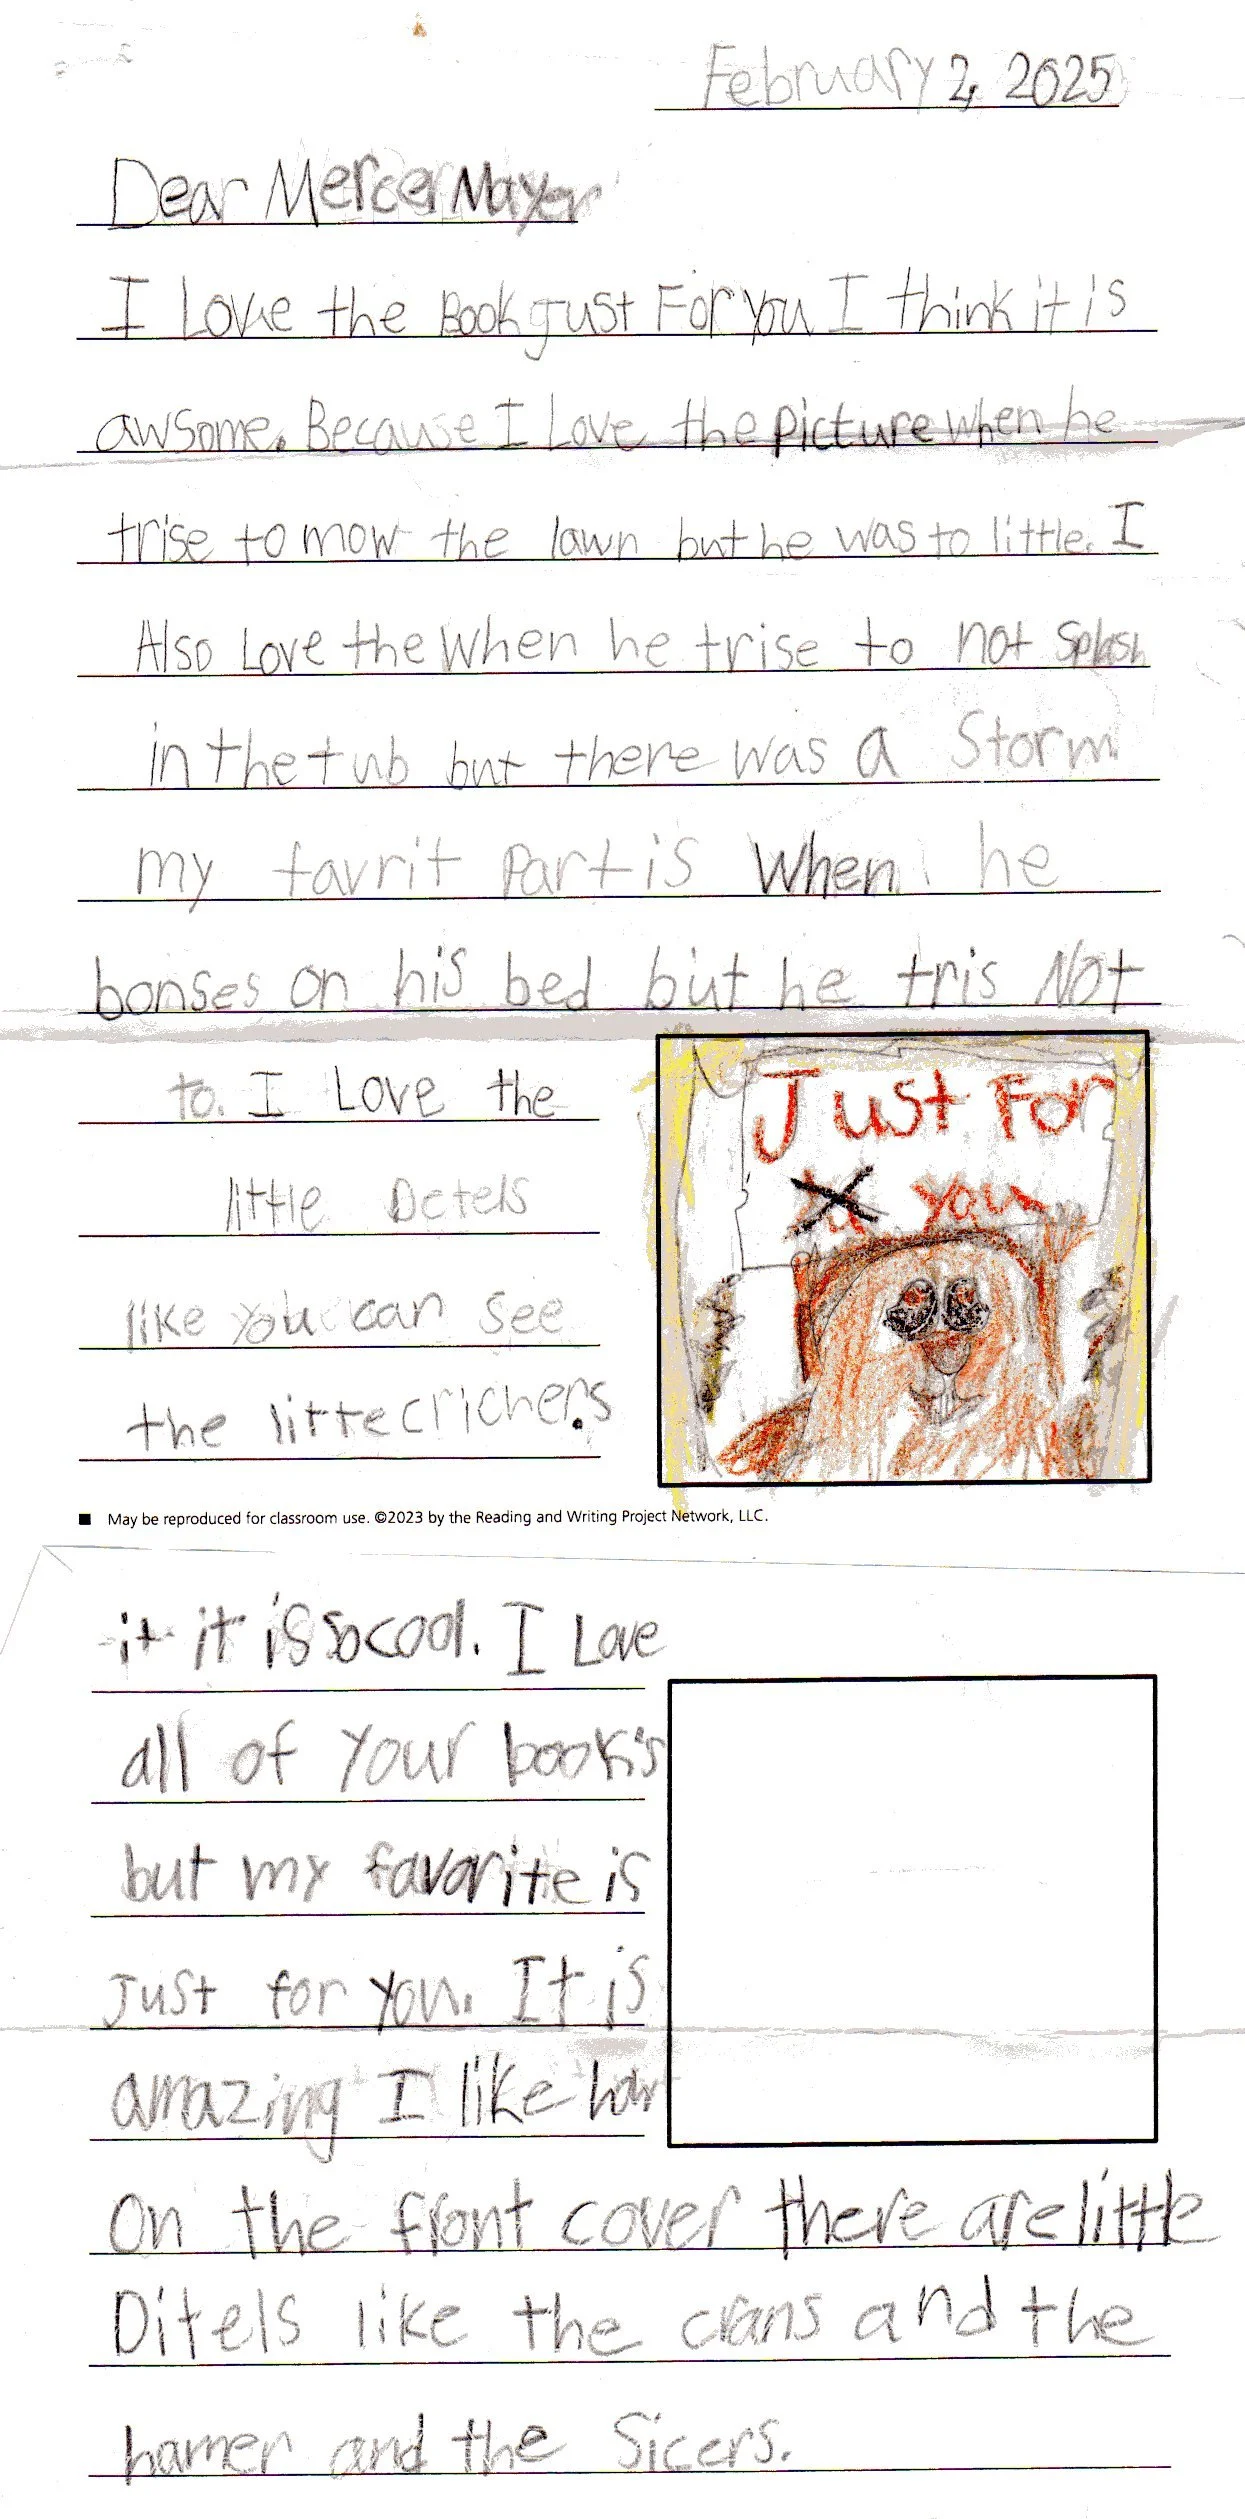 February 2, 2025
Dear Mercer Mayer
I Love the Book Just For You I think it is
awsome. Because I Love the picture when he
trise to mow the lawn but he was to little. I
Also Love the when he trise to not Splash
in the tub but there was a Storm.
my favrit Part is When he
bonses on his bed but he tris Not
to. I Love the
little Detels
like you can see
the litte crichers.
Just For
You
■ May be reproduced for classroom use. ©2023 by the Reading and Writing Project Network, LLC.
it it is so cool. I Love
all of your book's
but my favorite is
Just for you. It is
amazing I like how
On the front cover there are little
Ditels like the crans and the
hamer and the Sicers.